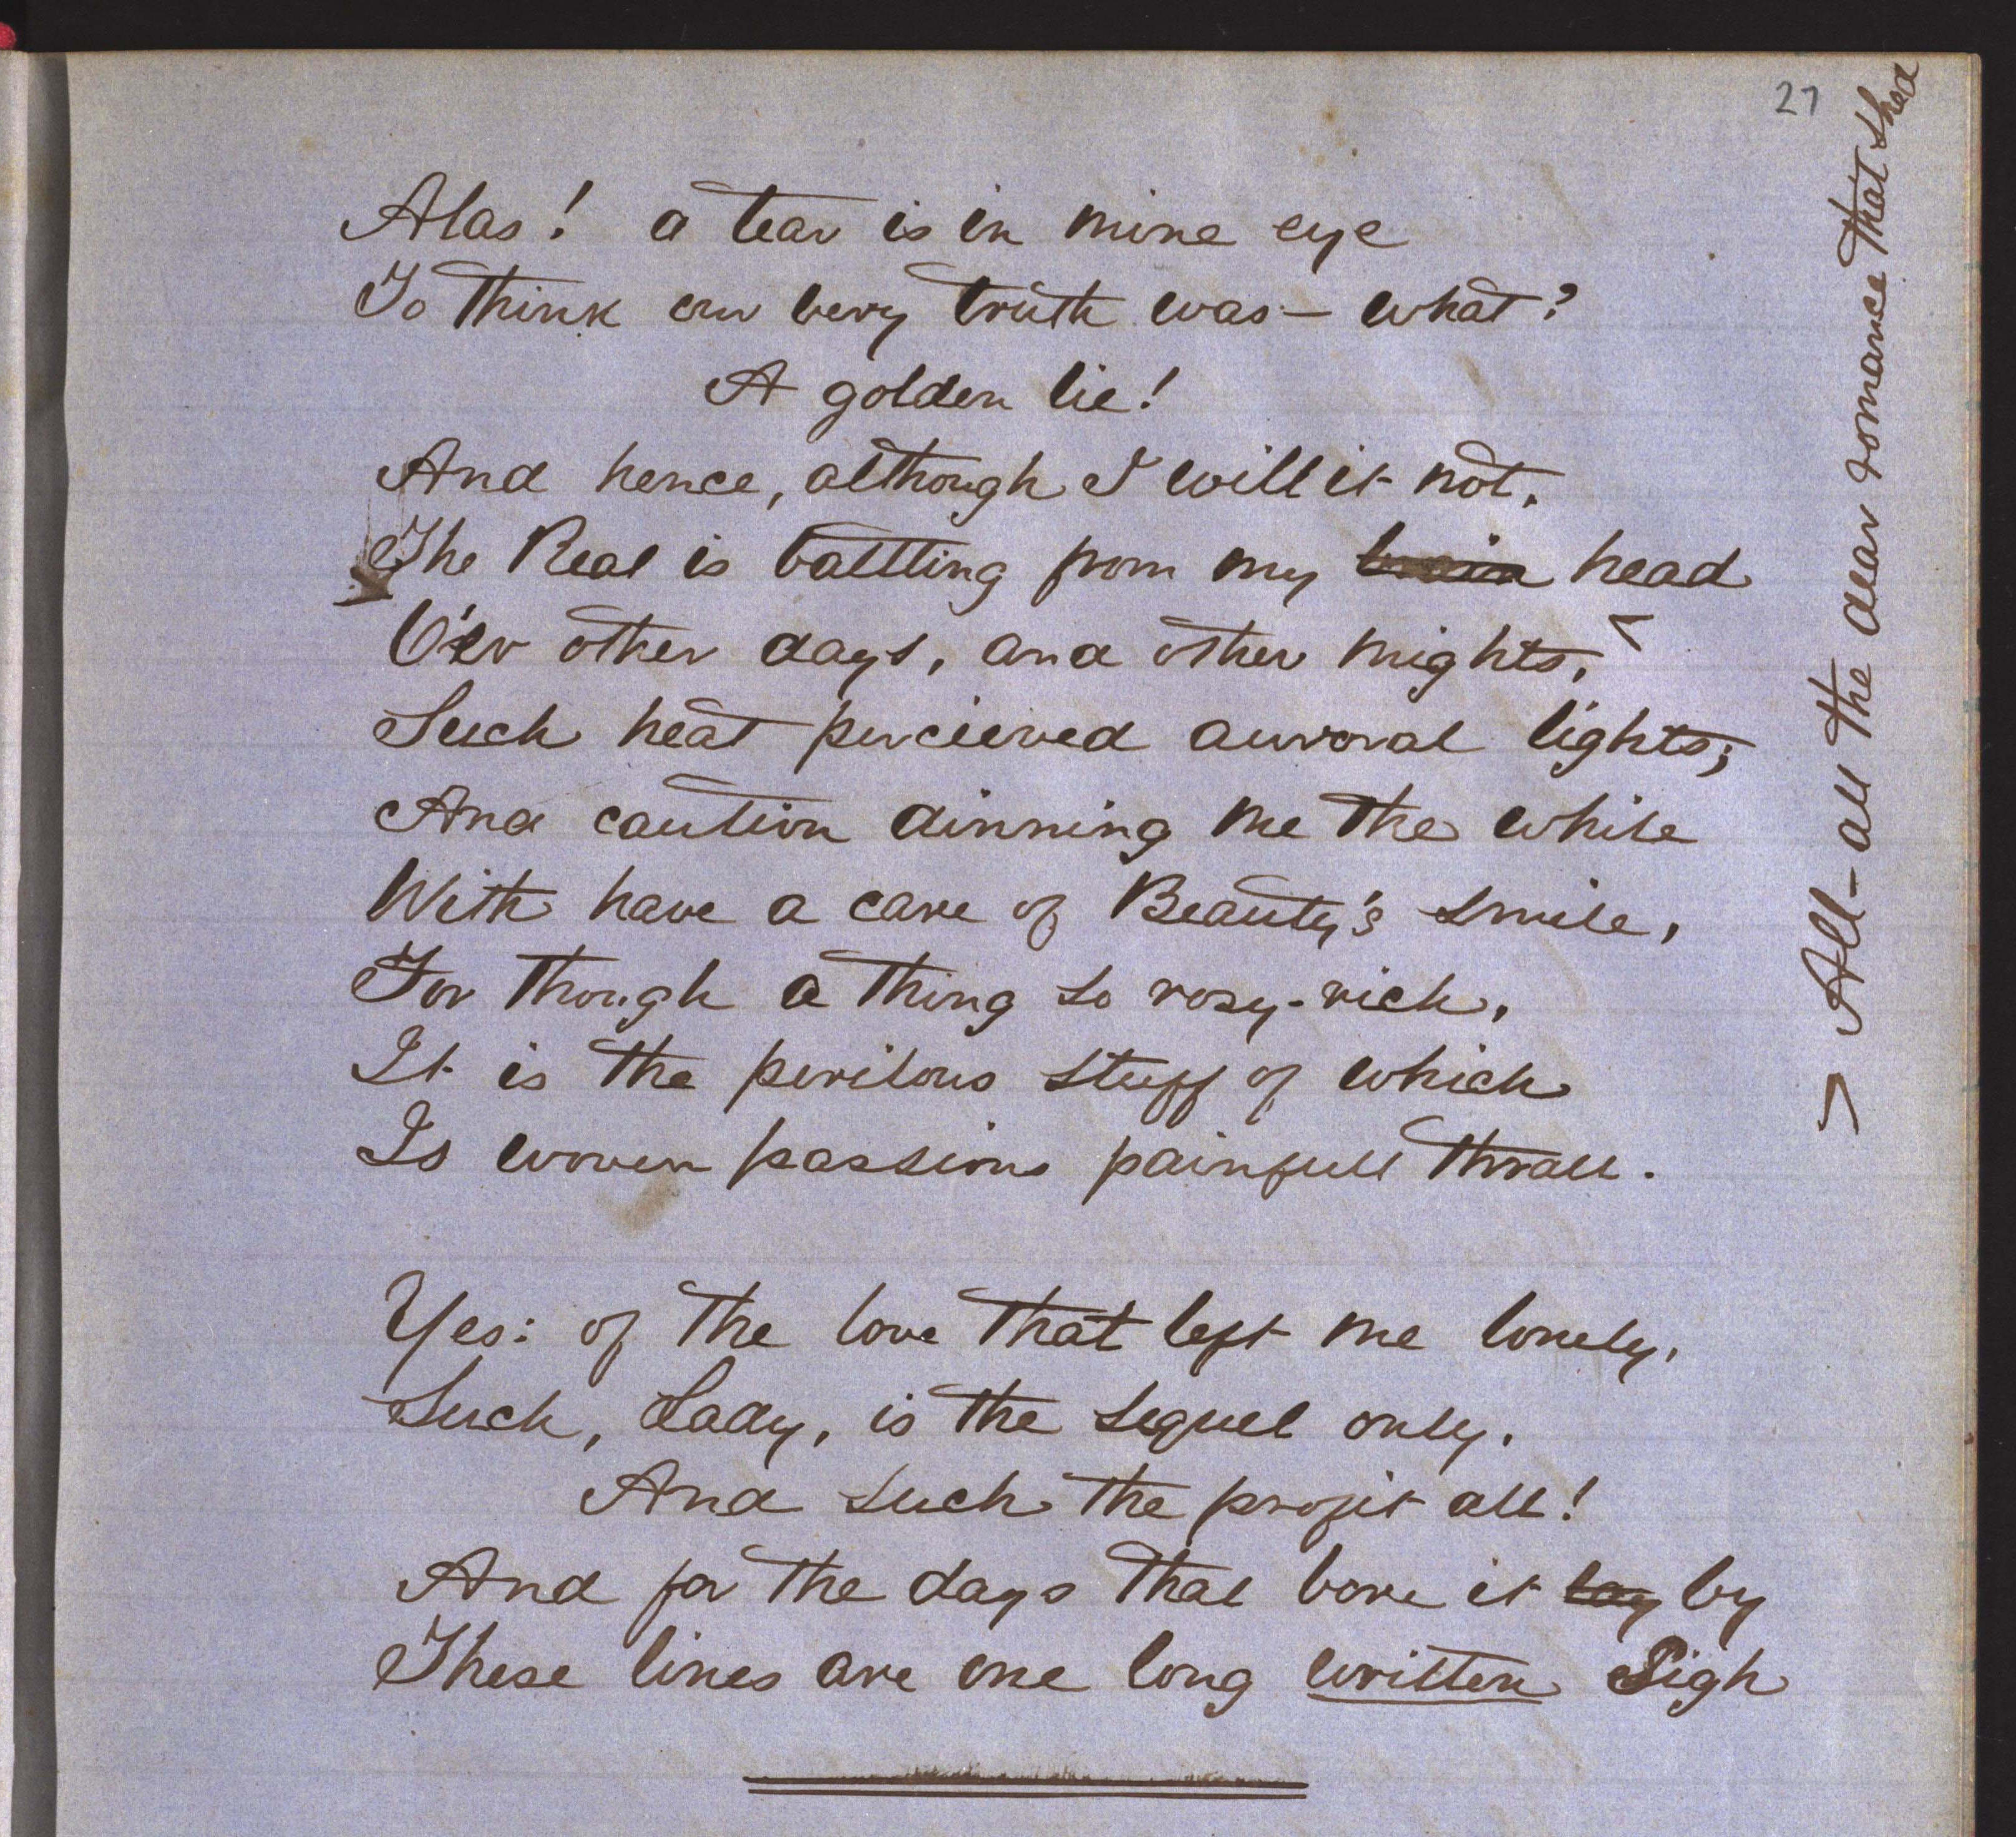 27
Alas! a tear is in mine eye
To think our very truth was — what?
A golden lie!
And hence, although I will it not,
The Real is battling from my brain head
O'er other days, and other nights,
Such heat percieved auroral lights;
And caution dinning me the while
With have a care of Beauty's smile,
For though a thing so rosy-rich,
It is the perilous stuff of which
Is woven passions painfull thrall.
Yes: of the love that left me lonely,
Such, Lady, is the sequel only.
And such the profit all!
And for the days that bore it lay by
These lines are one long written Sigh
> All - all the dear romance that shed